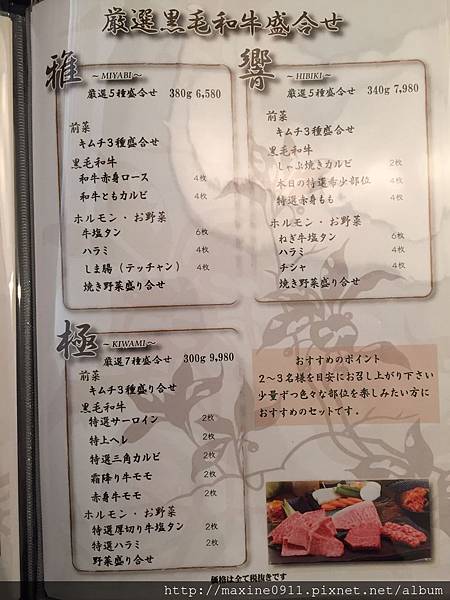 厳選黒毛和牛盛合せ
雅 ～MIYABI～
厳選5種盛合せ 380g 6,580
前菜
キムチ3種盛合せ
黒毛和牛
和牛赤身ロース 4枚
和牛ともカルビ 4枚
ホルモン・お野菜
牛塩タン 6枚
ハラミ 4枚
しま腸（テッチャン） 4枚
焼き野菜盛り合せ
響 ～HIBIKI～
厳選5種盛合せ 340g 7,980
前菜
キムチ3種盛合せ
黒毛和牛
しゃぶ焼きカルビ 2枚
本日の特選希少部位 4枚
特選赤身もも 4枚
ホルモン・お野菜
ねぎ牛塩タン 6枚
ハラミ 4枚
チシャ 4枚
焼き野菜盛り合せ
極 ～KIWAMI～
厳選7種盛合せ 300g 9,980
前菜
キムチ3種盛り合せ
黒毛和牛
特選サーロイン 2枚
特上ヘレ 2枚
特選三角カルビ 2枚
霜降り牛モモ 2枚
赤身牛モモ 2枚
ホルモン・お野菜
特選厚切り牛塩タン 2枚
特選ハラミ 2枚
野菜盛り合せ
おすすめのポイント
2～3名様を目安にお召し上がり下さい
少量ずつ色々な部位を楽しみたい方に
おすすめのセットです。
価格は全て税抜きです
http://maxine0911.pixnet.net/album